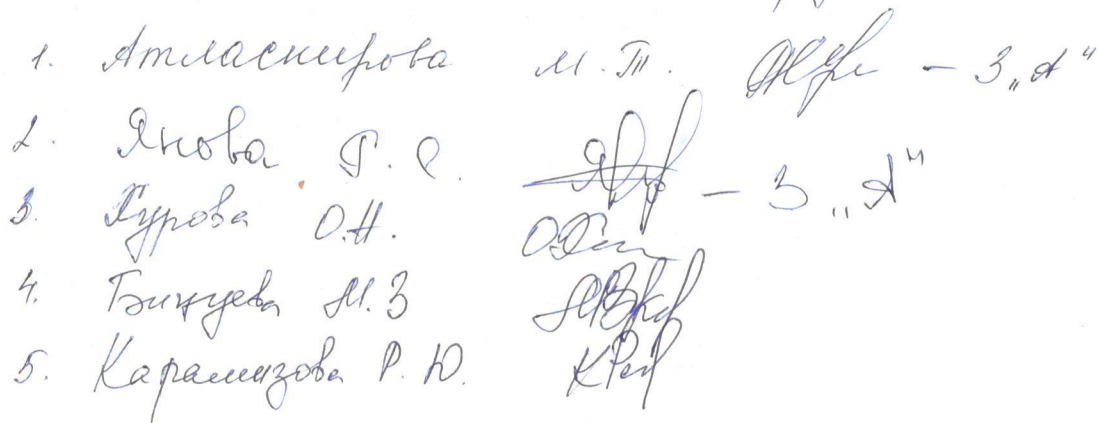 1. Атласкирова М.Т. – 3 „А“
2. Янова Г. С. – 3 „А“
3. Хурова О.Н.
4. Бицуева М.З
5. Карамизова Р. Ю.